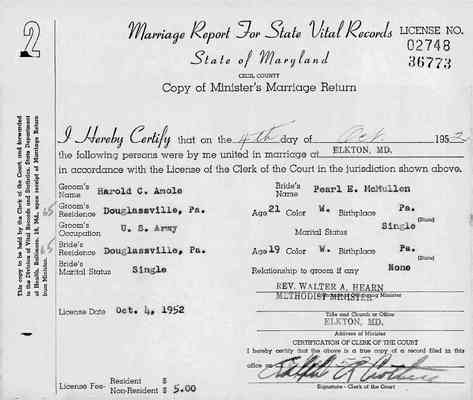 2
Marriage Report For State Vital Records
LICENSE NO.
State of Maryland
02748
36773
CECIL COUNTY
Copy of Minister's Marriage Return
I Hereby Certify that on the 4th day of Oct 1952
the following persons were by me united in marriage at ELKTON, MD.
in accordance with the License of the Clerk of the Court in the jurisdiction shown above.
Groom's Name Harold C. Amole Bride's Name Pearl E. McMullen
Groom's Residence Douglassville, Pa. Age 21 Color W. Birthplace Pa.
(State)
Groom's Occupation U. S. Army Marital Status Single
Bride's Residence Douglassville, Pa. Age 19 Color W. Birthplace Pa.
(State)
Bride's Marital Status Single Relationship to groom if any None
REV. WALTER A. HEARN
METHODIST MINISTER
License Date Oct. 4, 1952
Title and Church or Office
ELKTON, MD.
Address of Minister
CERTIFICATION OF CLERK OF THE COURT
I hereby certify that the above is a true copy of a record filed in this
office on
License Fee- Resident $
Non-Resident $ 5.00
Signature - Clerk of the Court
This copy to be held by the Clerk of the Court and forwarded
to the Division of Vital Records and Statistics, State Department
of Health, Baltimore, 18, Md., upon receipt of Marriage Return
from Minister.
65
65